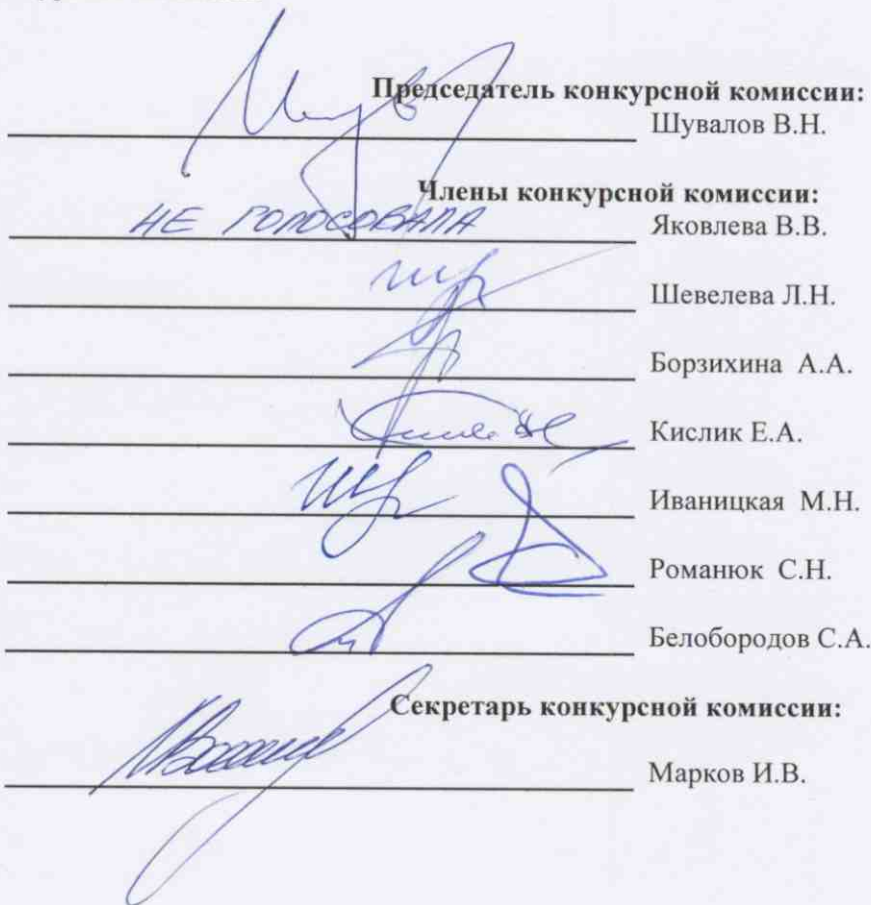 Председатель конкурсной комиссии:
Шувалов В.Н.
Члены конкурсной комиссии:
НЕ ГОЛОСОВАЛА Яковлева В.В.
Шевелева Л.Н.
Борзихина А.А.
Кислик Е.А.
Иваницкая М.Н.
Романюк С.Н.
Белобородов С.А.
Секретарь конкурсной комиссии:
Марков И.В.